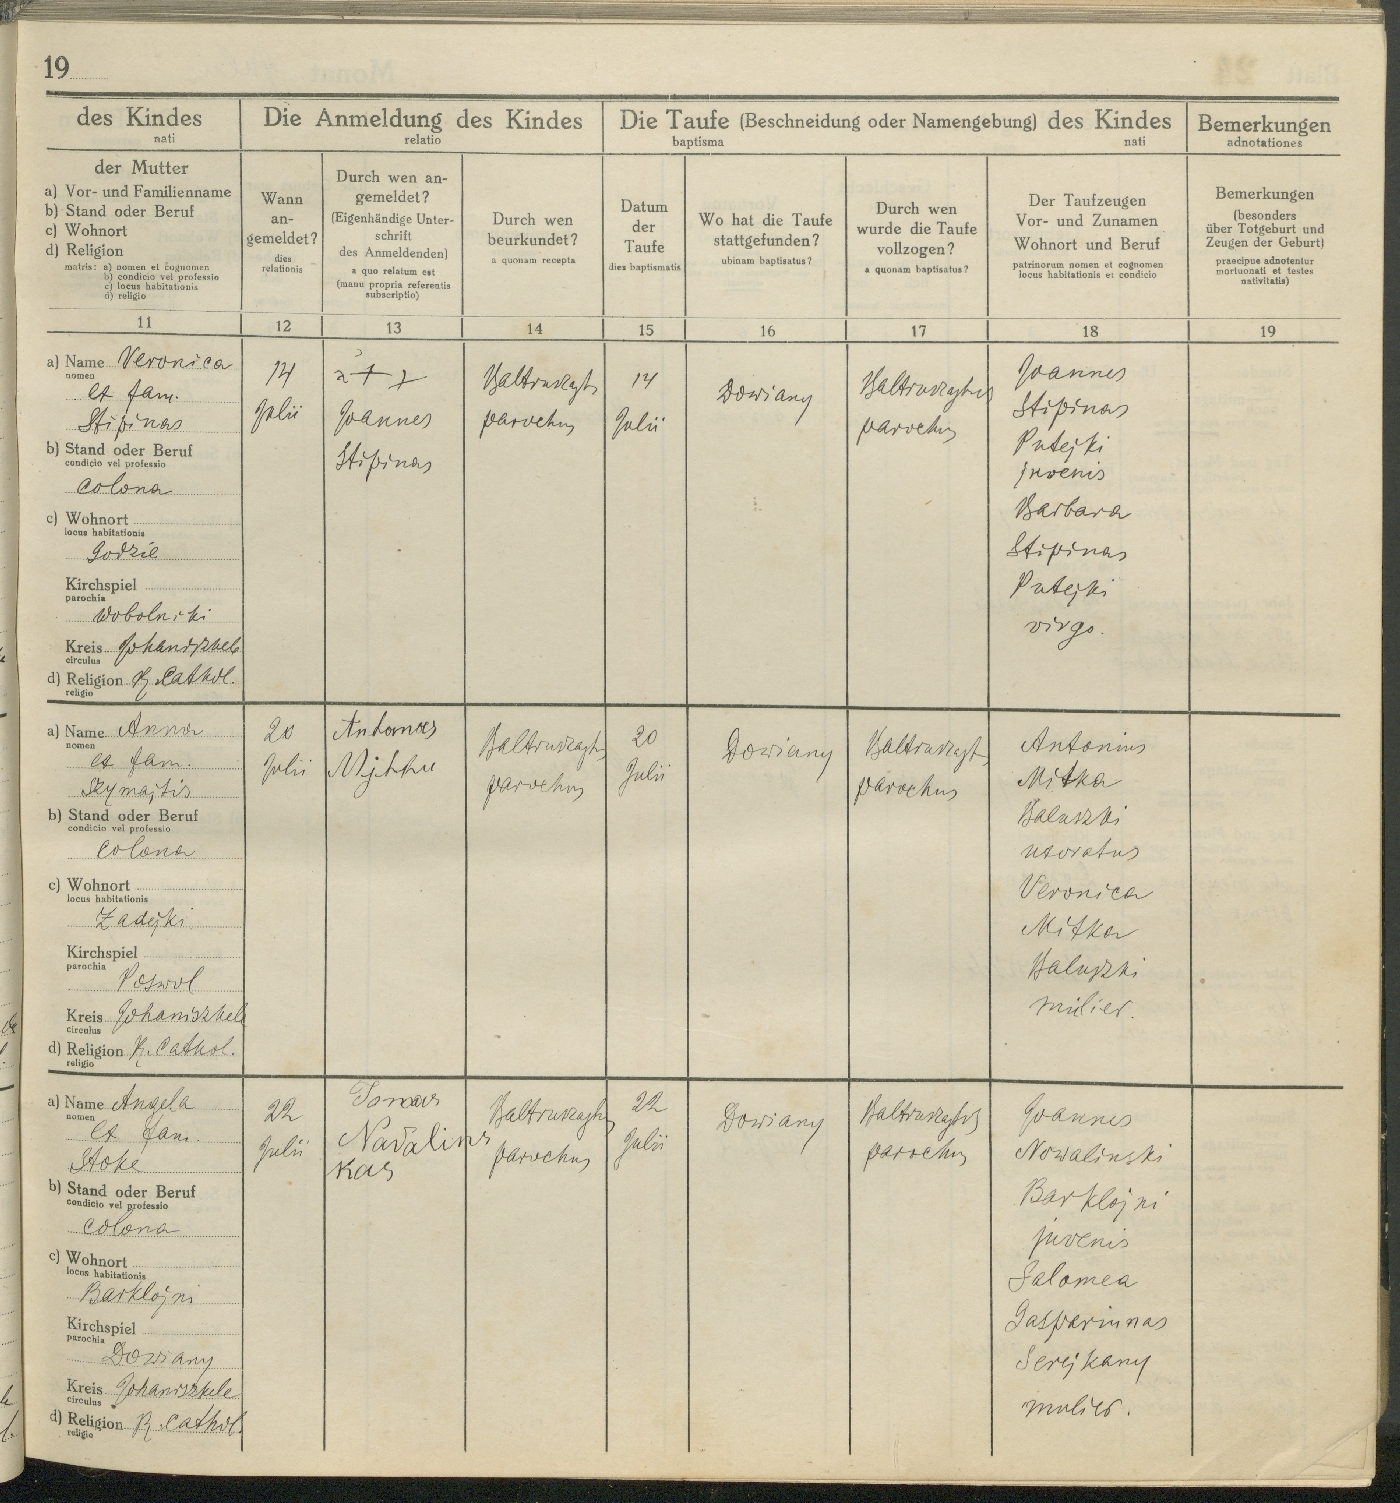 19
des Kindes
nati
Die Anmeldung des Kindes
relatio
Die Taufe (Beschneidung oder Namengebung) des Kindes
baptisma nati
Bemerkungen
adnotationes
der Mutter
a) Vor- und Familienname
b) Stand oder Beruf
c) Wohnort
d) Religion
matris: a) nomen et cognomen
b) condicio vel professio
c) locus habitationis
d) religio
Wann
an-
gemeldet?
dies
relationis
Durch wen an-
gemeldet?
(Eigenhändige Unter-
schrift
des Anmeldenden)
a quo relatum est
(manu propria referentis
subscriptio)
Durch wen
beurkundet?
a quonam recepta
Datum
der
Taufe
dies baptismatis
Wo hat die Taufe
stattgefunden?
ubinam baptisatus?
Durch wen
wurde die Taufe
vollzogen?
a quonam baptisatus?
Der Taufzeugen
Vor- und Zunamen
Wohnort und Beruf
patrinorum nomen et cognomen
locus habitationis et condicio
Bemerkungen
(besonders
über Totgeburt und
Zeugen der Geburt)
praecipue adnotentur
mortuonati et testes
nativitatis)
11
12
13
14
15
16
17
18
19
a) Name Veronica
nomen
et fam.
Stipinas
b) Stand oder Beruf
condicio vel professio
colona
c) Wohnort
locus habitationis
Godzie
Kirchspiel
parochia
Wobolniki
Kreis Johaniszkele
circulus
d) Religion R. Cathol.
religio
14
Julii
+
Joannes
Stipinas
Baltruszajtis
parochus
14
Julii
Dowiany
Baltruszajtis
parochus
Joannes
Stipinas
Putejki
juvenis
Barbara
Stipinas
Putejki
virgo.
a) Name Anna
nomen
et fam.
Szymajtis
b) Stand oder Beruf
condicio vel professio
colona
c) Wohnort
locus habitationis
Zadejki
Kirchspiel
parochia
Poswol
Kreis Johaniszkele
circulus
d) Religion R. Cathol.
religio
20
Julii
Antanas
Baltruszajtis
parochus
20
Julii
Dowiany
Baltruszajtis
parochus
Antonius
Mitka
Baluszki
uxoratus
Veronica
Mitka
Baluszki
mulier.
a) Name Angela
nomen
et fam.
Stoke
b) Stand oder Beruf
condicio vel professio
colona
c) Wohnort
locus habitationis
Barklojni
Kirchspiel
parochia
Dowiany
Kreis Johaniszkele
circulus
d) Religion R. Cathol.
religio
22
Julii
Tomas
Navalins
kas
Baltruszajtis
parochus
22
Julii
Dowiany
Baltruszajtis
parochus
Joannes
Nowalinski
Barklojni
juvenis
Salomea
Gasparunas
Serejkany
mulier.